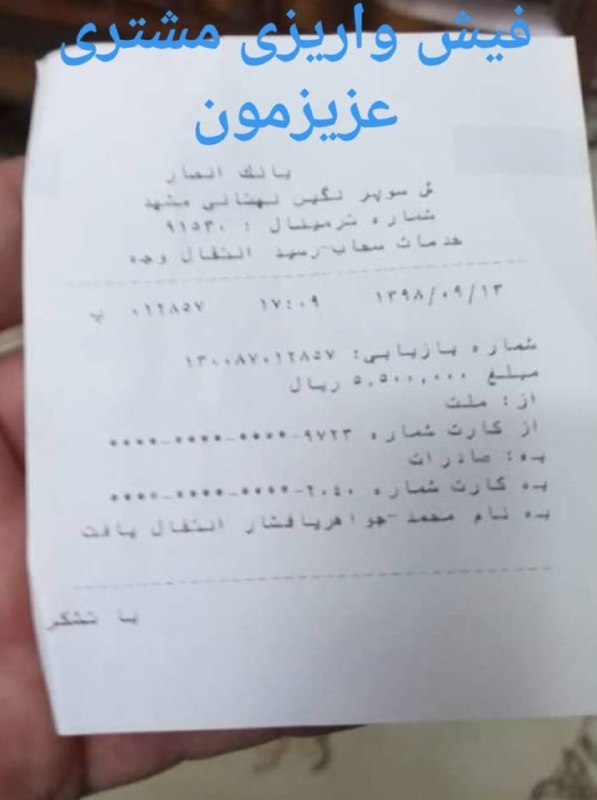 فیش واریزی مشتری
عزیزمون
بانك انصار
ش سوپر نگین تهتانی مشهد
شماره ترمینال : ۹۱۵۳۰
خدمات سحاب-رسید انتقال وجه
۱۳۹۸/۰۹/۱۳ ۱۷:۰۹ ۰۱۲۸۵۷ پ
شماره بازیابی: ۱۳۰۰۸۷۰۱۲۸۵۷
مبلغ ۵,۵۰۰,۰۰۰ ریال
از: ملت
از کارت شماره ****-****-****-۹۷۲۳
به: صادرات
به کارت شماره ****-****-****-۲۰۴۰
به نام محمد-جواهریافشار انتقال یافت
با تشکر